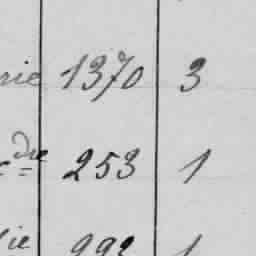 rie 1370 3
dre 253 1
ie 993 1